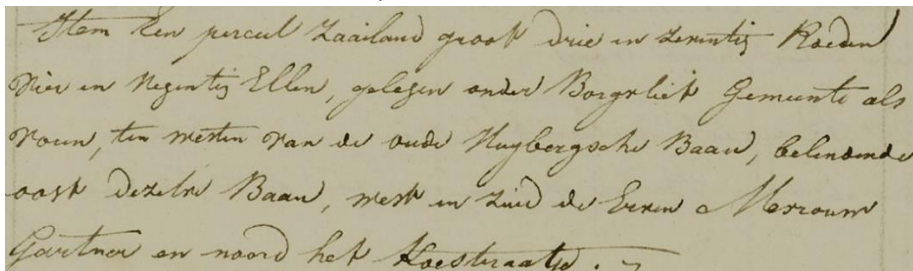 Item Een perceel Zaailand groot drie en zeventig Roeden
vier en Negentig Ellen, gelegen onder Borgvliet Gemeente als
voren, ten westen van de oude Huybergsche Baan, belendende
oost dezelve Baan, west en zuid de Erven Mevrouw
Gertner en noord het Koestraatje.